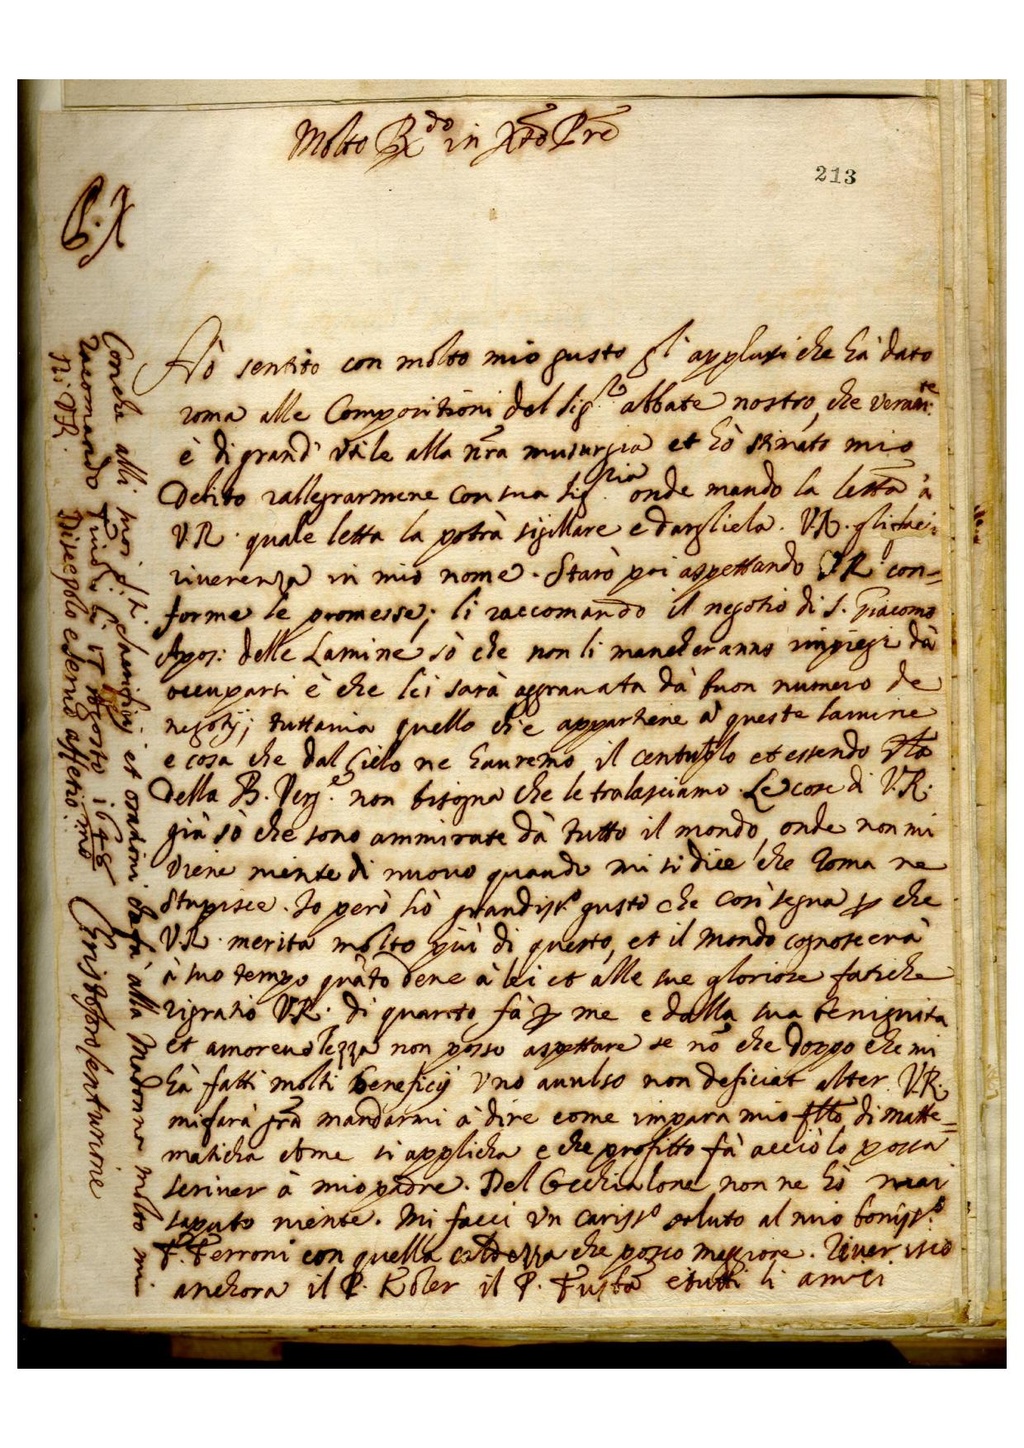 Molto R.do in Xpo Pre
213
P. X
Hò sentito con molto mio gusto gl' applausi che hà dato
roma alle Compositioni del Sig.r abbate nostro, che veram.te
è di grand' utile alla nra musurgia et hò stimato mio
debito rallegrarmene con sua Sig.ria onde mando la lettera à
V.R. quale letta la potrà sigillare e dargliela. V.R. gli facci
riverenza in mio nome. Starò poi aspettando V.R. con=
forme le promesse; li raccomando il negotio di S. Giacomo
Apos: delle Lamine, sò che non li mancheranno impiegi dà
occuparsi è che lei sarà aggravata dà buon numero de
negotij; tuttavia quello ch'è appartiene à queste lamine
e cosa che dal Cielo ne hauremo il centuplo et essendo
della B. Verg.e non bisogna che le tralasciamo. Le cose di V.R.
già sò che sono ammirate dà tutto il mondo, onde non mi
viene niente di nuovo quando mi si dice che roma ne
stupisce. Io però hò grandiss.o gusto che così segua p che
V.R. merita molto più di questo, et il mondo cognoscerà
à suo tempo quãto deve à lei et alle sue gloriose fatiche
rigratio V.R. di quanto fà p me e dalla sua benignita
et amorevolezza non posso aspettare se nõ che doppo che mi
hà fatti molti beneficij uno avulso non deficiat alter. V.R.
mi farà gra mandarmi à dire come impara mio fllo di matte=
maticha come si applicha e che profitto fà acciò lo possa
scriver à mio padre. Del Cechialone non ne hò mai
saputo niente. Mi facci un cariss.o saluto al mio boniss.o
F. Ferroni con quella caldezza che posso maggiore. Riverisco
anchora il P. Koler il P. e tutti li amici
Con che alli suoi S.ti Sacrificij et orationi dafã alla Madonna molto mi
raccomando li 15 Agosto 1648
Di V.R.
Discepolo e servo affetio.mo
Cristoforo Sentursione